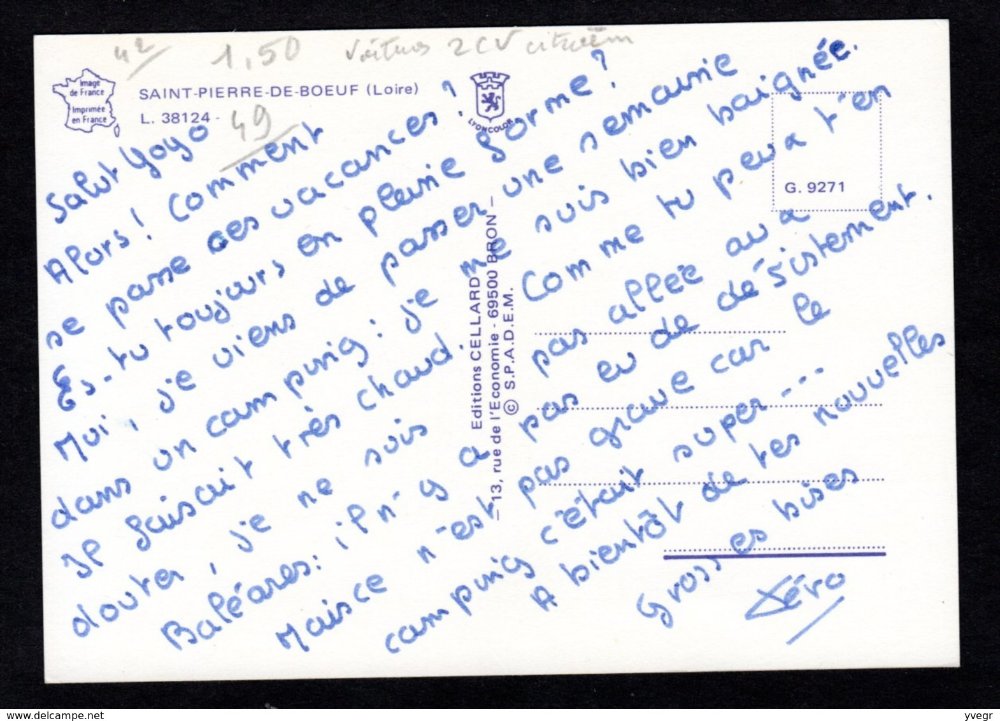 42
1,50
Voitures 2CV citroën
Image
de France
Imprimée
en France
SAINT-PIERRE-DE-BOEUF (Loire)
L. 38124 -
49
LYONCOLOR
G. 9271
Editions CELLARD
— 13, rue de l'Economie - 69500 BRON —
© S.P.A.D.E.M.
Salut Yoyo
Alors! Comment
se passe ces vacances?
Es-tu toujours en pleine forme?
Moi, je viens de passer une semaine
dans un camping: je me suis bien baignée.
Il faisait très chaud. Comme tu peux t'en
douter, je ne suis pas allée aux
Baléares: il n'y a pas eu de désistement.
Mais ce n'est pas grave car le
camping c'était super---
A bientôt de tes nouvelles
Grosses bises
Véro
yvegr